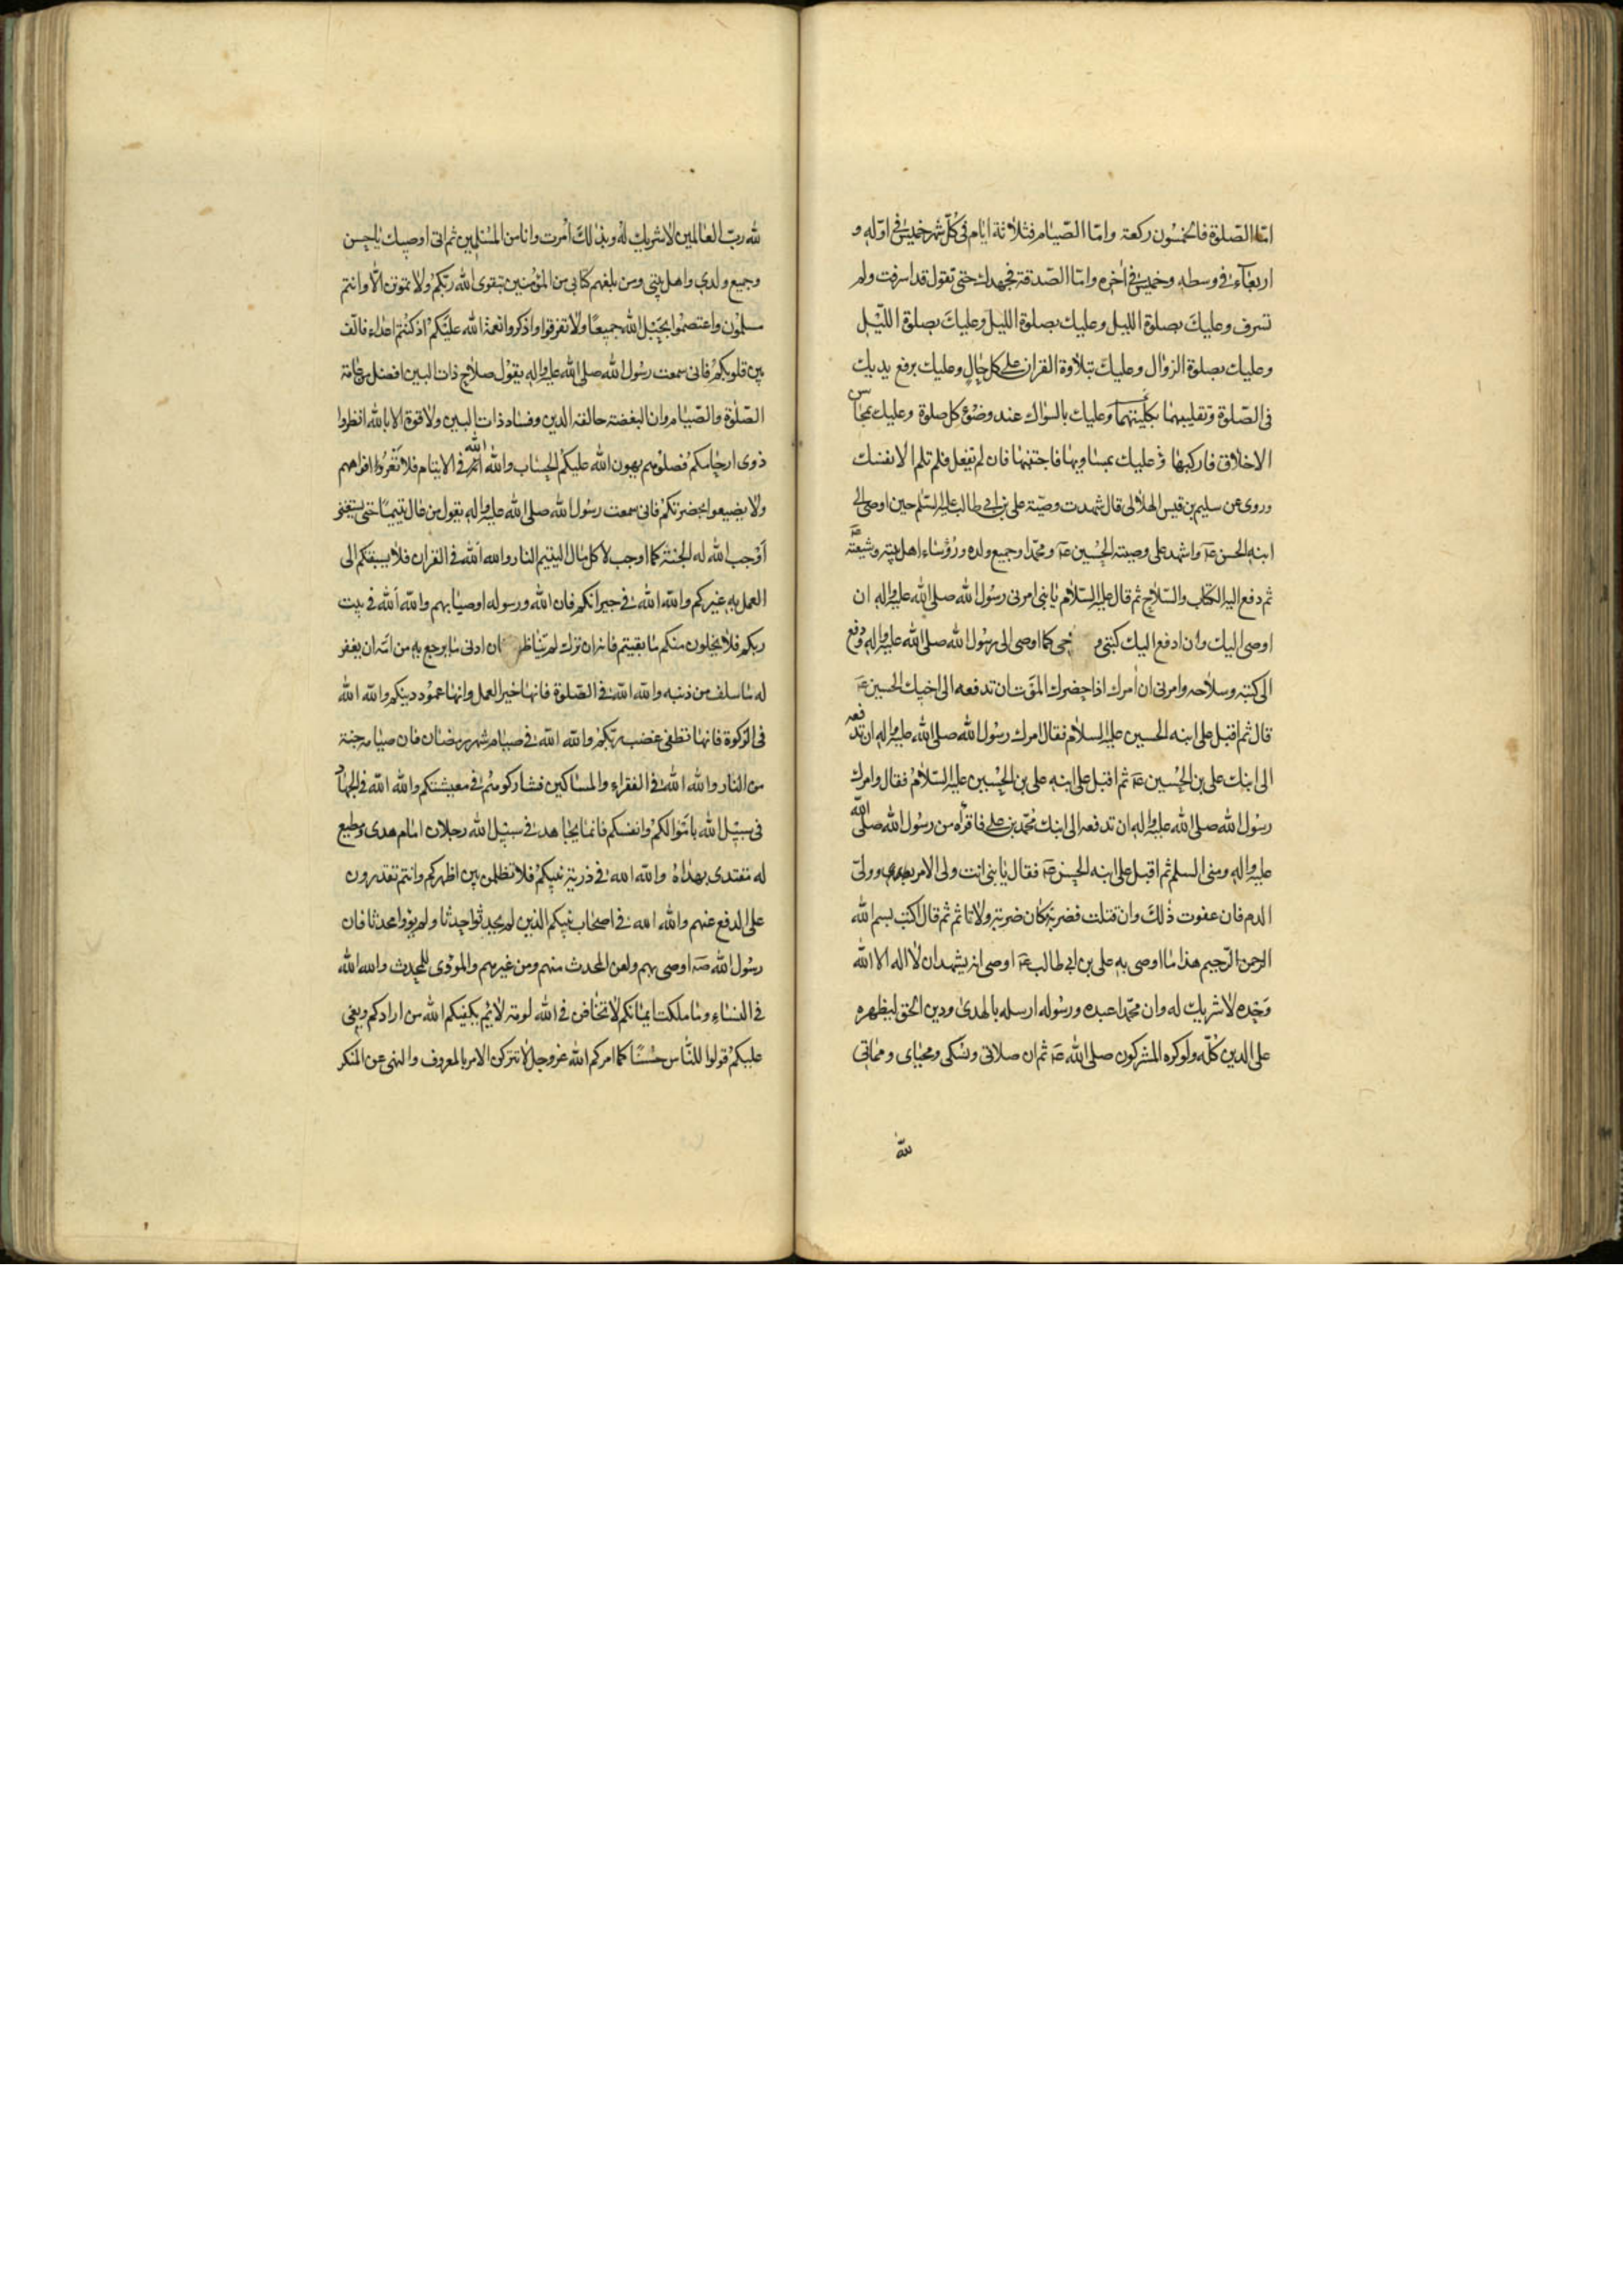 امّا الصّلوة فالخمسون ركعة وامّا الصّيام فثلاثة ايّام فى كلّ شهر خميس فى اوّله و
اربعاء فى وسطه وخميس فى اخره وامّا الصّدقة فجهدك حتى تقول قد اسرفت ولم
تسرف وعليك بصلوة الليل وعليك بصلوة الليل وعليك بصلوة الليل
وعليك بصلوة الزوال وعليك بتلاوة القران على كل حال وعليك برفع يديك
فى الصّلوة وتقليبهما بكلتيهما وعليك بالسواك عند وضوء كل صلوة وعليك بمحاسن
الاخلاق فاركبها وعليك بمساويها فاجتنبها فان لم تفعل فلم تلم الا نفسك
وروى عن سليم بن قيس الهلالى قال شهدت وصيّة على بن ابى طالب عليه السّلم حين اوصى الى
ابنه الحسن عه واشهد على وصيته الحسين عه ومحمّدا وجميع ولده ورؤساء اهل بيته وشيعته عه
ثم دفع اليه الكتاب والسّلاح ثم قال عليه السّلام يا بنى امرنى رسول الله صلى الله عليه واله ان
اوصى اليك وان ادفع اليك كتبى و حى كما اوصى الى رسول الله صلى الله عليه واله ودفع
الى كتبه وسلاحه وامرنى ان امرك اذا حضرك الموت ان تدفعه الى اخيك الحسين عه
قال ثم اقبل على ابنه الحسين عليه السلام فقال امرك رسول الله صلى الله عليه واله ان تدفعه
الى ابنك على بن الحسين عه ثم اقبل على ابنه على بن الحسين عليه السّلام فقال وامرك
رسول الله صلى الله عليه واله ان تدفعه الى ابنك محمّد بن على فاقراه من رسول الله صلى الله
عليه واله ومنى السلم ثم اقبل على ابنه الحسن عه فقال يا بنى انت ولى الامر بعدى وولىّ
الدم فان عفوت ذلك وان قتلت فضربة كان ضربة ولا تاثم ثم قال اكتب بسم الله
الرحمن الرّحيم هذا ما اوصى به على بن ابى طالب عه اوصى انه يشهد ان لا اله الا الله
وحده لا شريك له وان محمّدا عبده ورسوله ارسله بالهدى ودين الحق ليظهره
على الدين كلّه ولو كره المشركون صلى الله عه ثم ان صلاتى ونسكى ومحياى ومماتى
لله
لله ربّ العالمين لا شريك له وبذلك امرت وانا من المسلمين ثم انى اوصيك يا حسن
وجميع ولدى واهل بيتى ومن بلغهم كتابى من المؤمنين بتقوى الله ربّكم ولا تموتن الّا وانتم
مسلمون واعتصموا بحبل الله جميعًا ولا تفرقوا واذكروا نعمة الله عليكم اذ كنتم اعداء فالف
بين قلوبكم فانى سمعت رسول الله صلى الله عليه واله يقول صلاح ذات البين افضل من عامة
الصّلوة والصّيام وان البغضة حالقة الدين وفساد ذات البين ولا قوة الا بالله انظروا
ذوى ارحامكم فصلوهم يهون الله عليكم الحساب والله الله فى الايتام فلا تغرّوا افواههم
ولا يضيعوا بحضرتكم فانى سمعت رسول الله صلى الله عليه واله يقول من عال يتيمًا حتى يستغنى
اوجب الله له الجنّة كما اوجب لاكل مال اليتيم النار والله الله فى القران فلا يسبقكم الى
العمل به غيركم والله الله فى جيرانكم فان الله ورسوله اوصيا بهم والله الله فى بيت
ربكم فلا يخلون منكم ما بقيتم فانه ان ترك لم تناظر ان ادنى ما يرجع به من امّه ان يغفر
له ما سلف من ذنبه والله الله فى الصّلوة فانها خير العمل وانها عمود دينكم والله الله
فى الزكوة فانها تطفى غضب ربّكم والله الله فى صيام شهر رمضان فان صيامه جنة
من النار والله الله فى الفقراء والمساكين فشاركوهم فى معيشتكم والله الله فى الجهاد
فى سبيل الله باموالكم وانفسكم فانما يجاهد فى سبيل الله رجلان امام هدى ومطيع
له مقتدى بهداه والله الله فى ذرية نبيكم فلا تظلمن بين اظهركم وانتم تقدرون
على الدفع عنهم والله الله فى اصحاب نبيكم الذين لم يحدثوا حدثا ولم يؤوا محدثا فان
رسول الله صه اوصى بهم ولعن المحدث منهم ومن غيرهم والمووى للمحدث والله الله
فى النساء وما ملكت ايمانكم لا تخافن فى الله لومة لائم يكفيكم الله من ارادكم وبغى
عليكم قولوا للنّاس حسنًا كما امركم الله عز وجل لا تتركن الامر بالمعروف والنهى عن المنكر